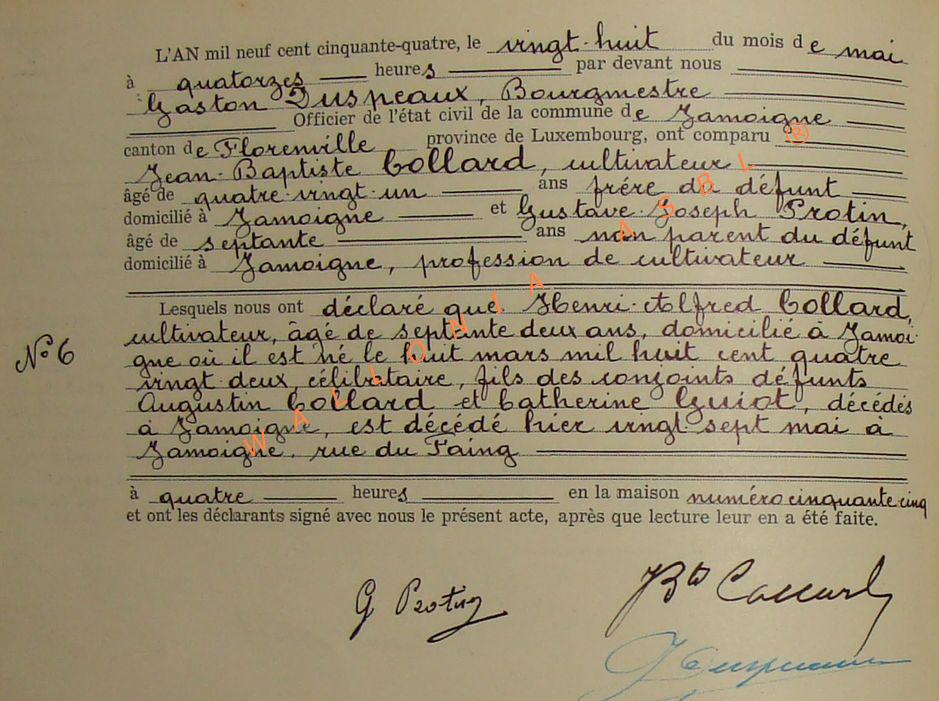 L'AN mil neuf cent cinquante-quatre, le vingt-huit du mois de mai
à quatorzes heures par devant nous
Gaston Duspeaux, Bourgmestre
Officier de l'état civil de la commune de Jamoigne
canton de Florenville province de Luxembourg, ont comparu
Jean-Baptiste Collard, cultivateur
âgé de quatre-vingt-un ans frére du défunt
domicilié à Jamoigne et Gustave-Joseph Protin,
âgé de septante ans non parent du défunt
domicilié à Jamoigne, profession de cultivateur
Lesquels nous ont déclaré que Henri-Alfred Collard,
cultivateur, âgé de septante deux ans, domicilié à Jamoi-
N° 6
gne où il est né le huit mars mil huit cent quatre
vingt-deux, célibataire, fils des conjoints défunts
Augustin Collard et Catherine Guiot, décédés
à Jamoigne, est décédé hier vingt-sept mai à
Jamoigne, rue du Faing
à quatre heures en la maison numéro cinquante-cinq
et ont les déclarants signé avec nous le présent acte, après que lecture leur en a été faite.
G Protin
JBte Collard
WALLONIA ASBL ®